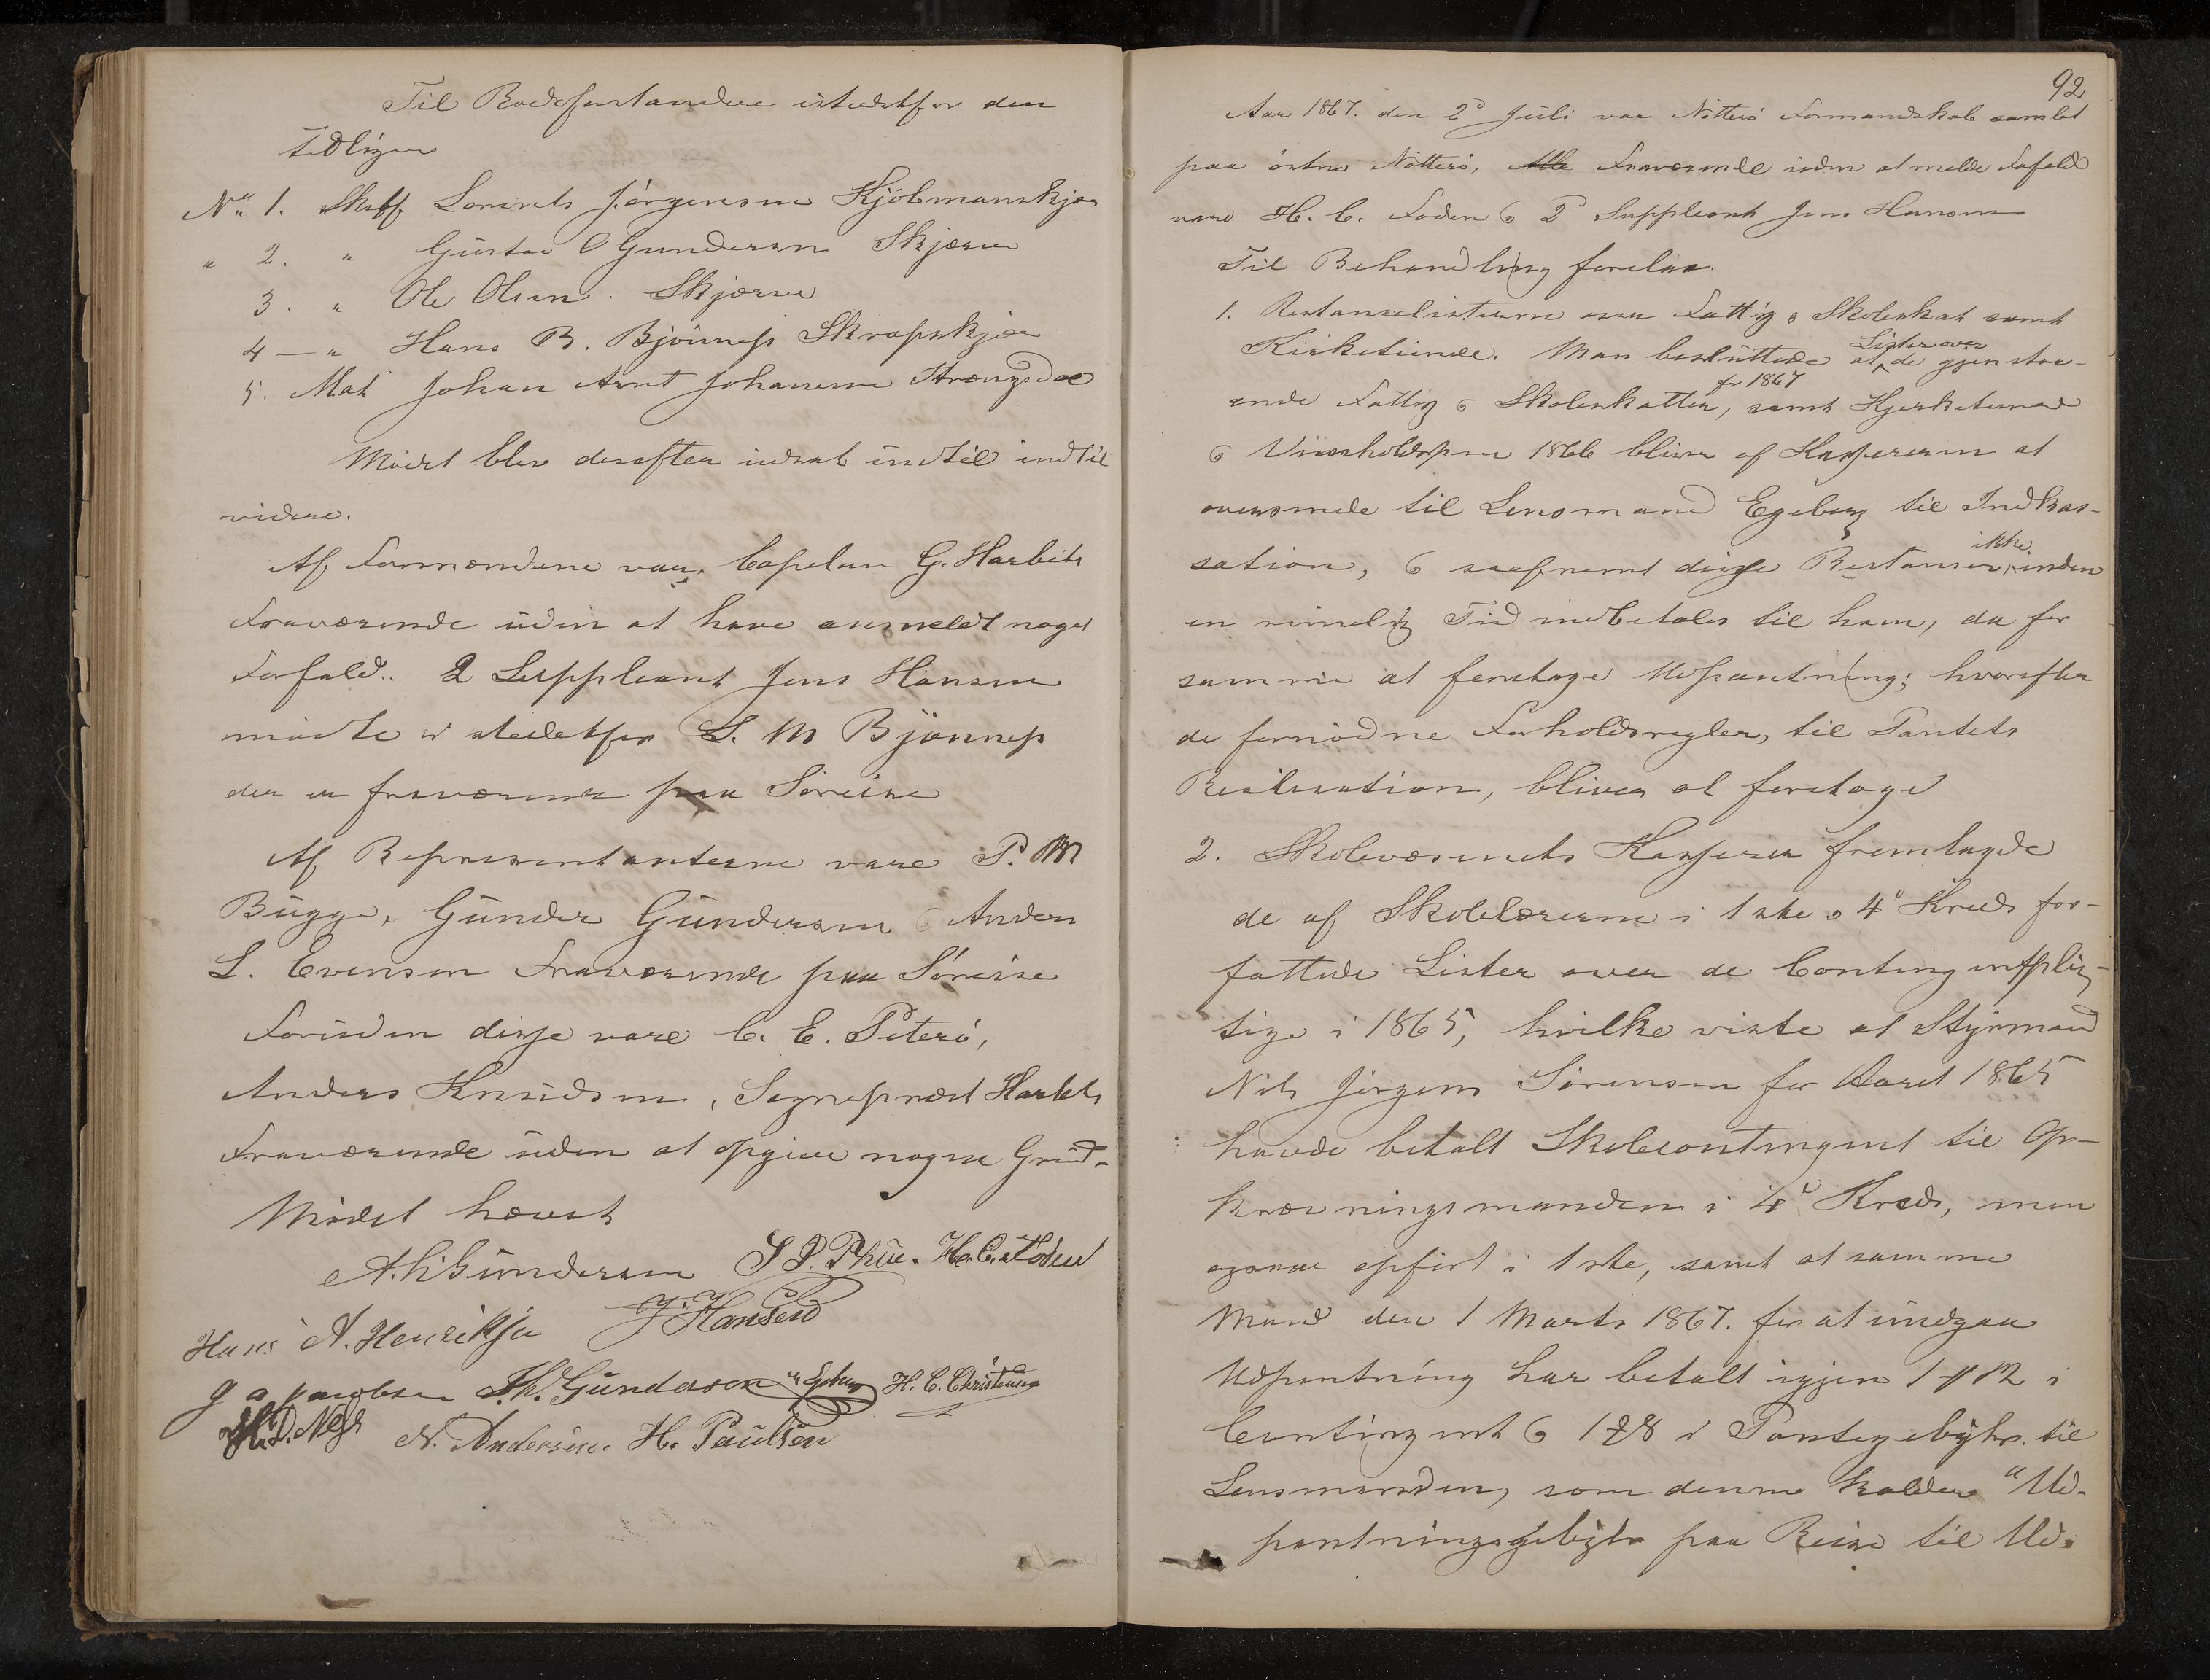 Til Rodeforstandere istedetfor den
tidligere
No. 1. Skibsf. Lorents Jørgensen Kjøbmanskjær
" 2. " Gustav O Gundersen Skjærve
3. " Ole Olsen. Skjærve
4 — " Hans B. Bjønness Skrapskjær
5. Mat Johan Arnt Johannesen Strengsdal
Mødet blev derefter udsat indtil indtil
videre.
Af Formændene var Capelan G. Harbitz
Fraværende uden at have anmeldt noget
Forfald. 2 Suppleant Jens Hansen
mødte istedetfor S. M Bjønness
der er fraværende paa Søreise
Af Representanterne vare P. M
Bugge, Gunder Gundersen o Anders
L. Evensen Fraværende paa Søreise
Foruden disse vare C. E. Peterø,
Anders Knudsen, Sognepræst Harbitz
Fraværende uden at opgive nogen Grund.
Mødet hævet
A. H. Gundersen S P. Thue. H. C. Foden
Hans A. Henriksen J. Hansen
J A Jacobsen Th. Gundersen Egeberg H. C. Christensen
H. D. Ness N. Andersen. H. Paulsen
92
Aar 1867. den 2d Juli var Nøtterø Formandskab samlet
paa østre Nøtterø, Alle Fraværende uden at melde Forfald
vare H. C. Foden o 2d Suppleant Jens Hansen
Til Behandling forelaa.
1. Restanselisterne over Fattig o Skoleskat samt
Kirketiende. Man besluttede at Lister over de gjenstaa-
ende Fattig o Skoleskatter for 1867, samt Kjerketiende
o Vinholdspen 1866 bliver af Kassereren at
oversende til Lensmand Egeberg til Indkas-
sation, o saafremt disse Restanser ikke inden
en rimelig Tid indbetales til ham, da for
samme at foretage Udpantning; hvorefter
de fornødne Forholdsregler, til Pantets
Realisation, bliver at foretage
2. Skolevæsenets Kasserer fremlagde
de af Skolelærerne i 1ste o 4de Kreds for-
fattede Lister over de Contingentplig-
tige i 1865, hvilke viste at Styrmand
Nils Jørgen Sørensen for Aaret 1865
havde betalt Skolecontingent til Op-
krævningsmanden i 4de Kreds, men
ogsaa opført i 1ste, samt at samme
Mand den 1 Marts 1867. for at undgaa
Udpantning har betalt igjen 1 12 i
Contingent o 1 8 i Pantegebyhr til
Lensmanden, som denne kalder "Ud-
pantningsgebyhr paa Reise til Ud-